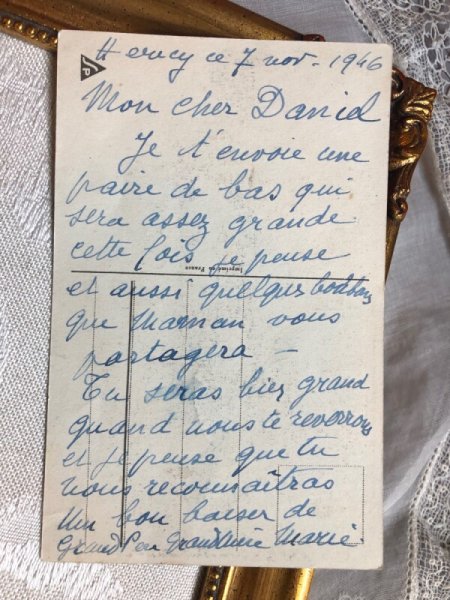 ce 7 nov. 1946
Mon cher Daniel
Je t'envoie une
paire de bas qui
sera assez grande
cette fois je pense
Imprimé en France
et aussi quelques bonbons
que Maman vous
partagera —
Tu seras bien grand
quand nous te reverrons
et je pense que tu
nous reconnaîtras
Un bon baiser de
Grand Marie